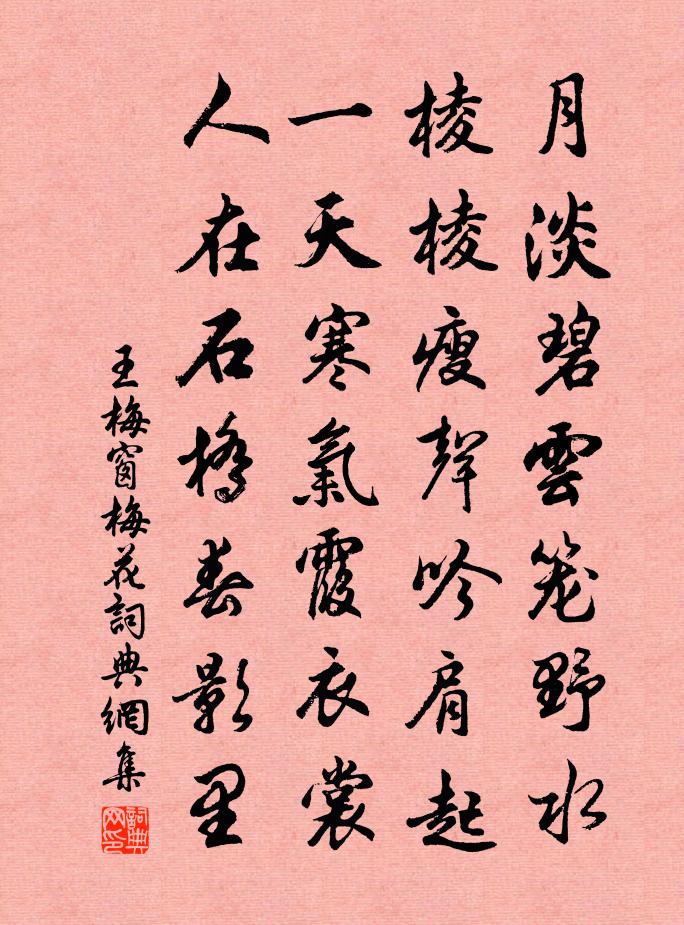 月淡碧雲笼野水
棱棱瘦聲吟肩起
一天寒氣霞衣裳
人在石橋春影里
王梅窗梅花詞典網集
詞典网印